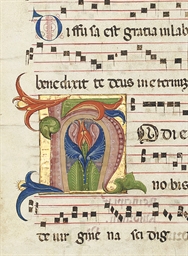 Diffusa est gratia in lab
benedixit te deus in eternu
Hodie
nobis
de virgine nasci dig